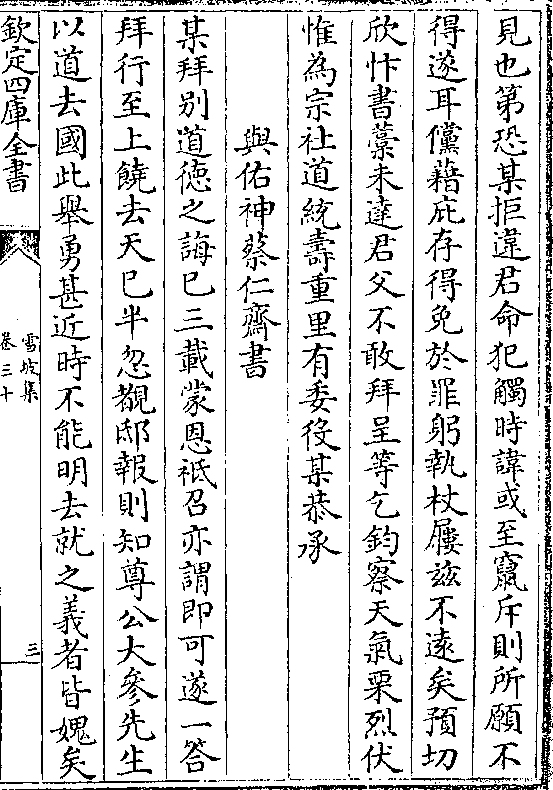 見也第恐某拒違君命犯觸時諱或至竄斥則所願不
得遂耳儻藉庇存得免於罪躬執杖屨兹不逺矣預切
欣忭書藁未達君父不敢拜呈等乞鈞察天氣栗烈伏
惟為宗社道統壽重里有委役某恭承
與佑神蔡仁齋書
某拜别道徳之誨已三載蒙恩祗召亦謂即可遂一答
拜行至上饒去天已半忽覩邸報則知尊公大參先生
以道去國此舉勇甚近時不能明去就之義者皆媿矣
欽定四庫全書
雪坡集
卷三十
三